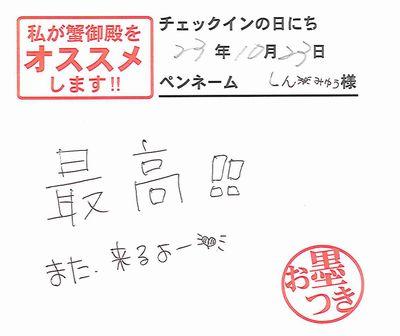 私が蟹御殿を
オススメ
します!!
チェックインの日にち
23年10月23日
ペンネーム しん みゅう様
最高!!
また.来るよー
お墨つき